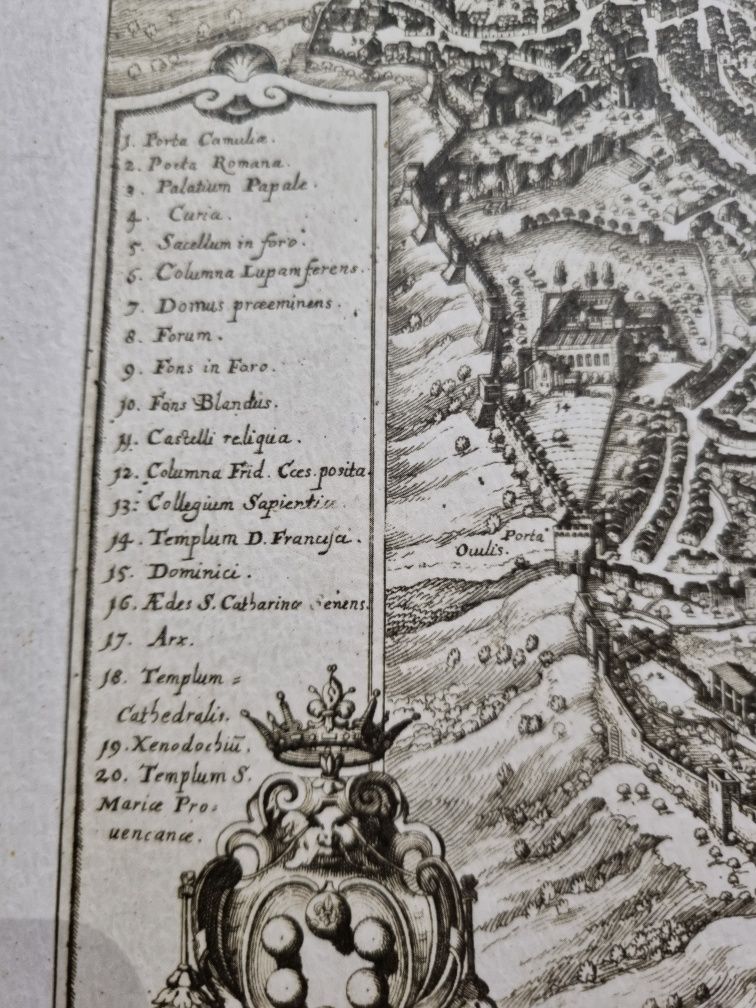 1. Porta Camuliæ.
2. Porta Romana.
3. Palatium Papale.
4. Curia.
5. Sacellum in foro.
6. Columna Lupam ferens.
7. Domus præeminens.
8. Forum.
9. Fons in Foro.
10. Fons Blandus.
11. Castelli reliqua.
12. Columna Frid. Cæs. posita.
13. Collegium Sapientiæ
14. Templum D. Francisci.
15. Dominici.
16. Ædes S. Catharinæ Senens.
17. Arx.
18. Templum =
Cathedralis.
19. Xenodochiū.
20. Templum S.
Mariæ Pro-
uencanæ.
14
Porta
Ouilis.